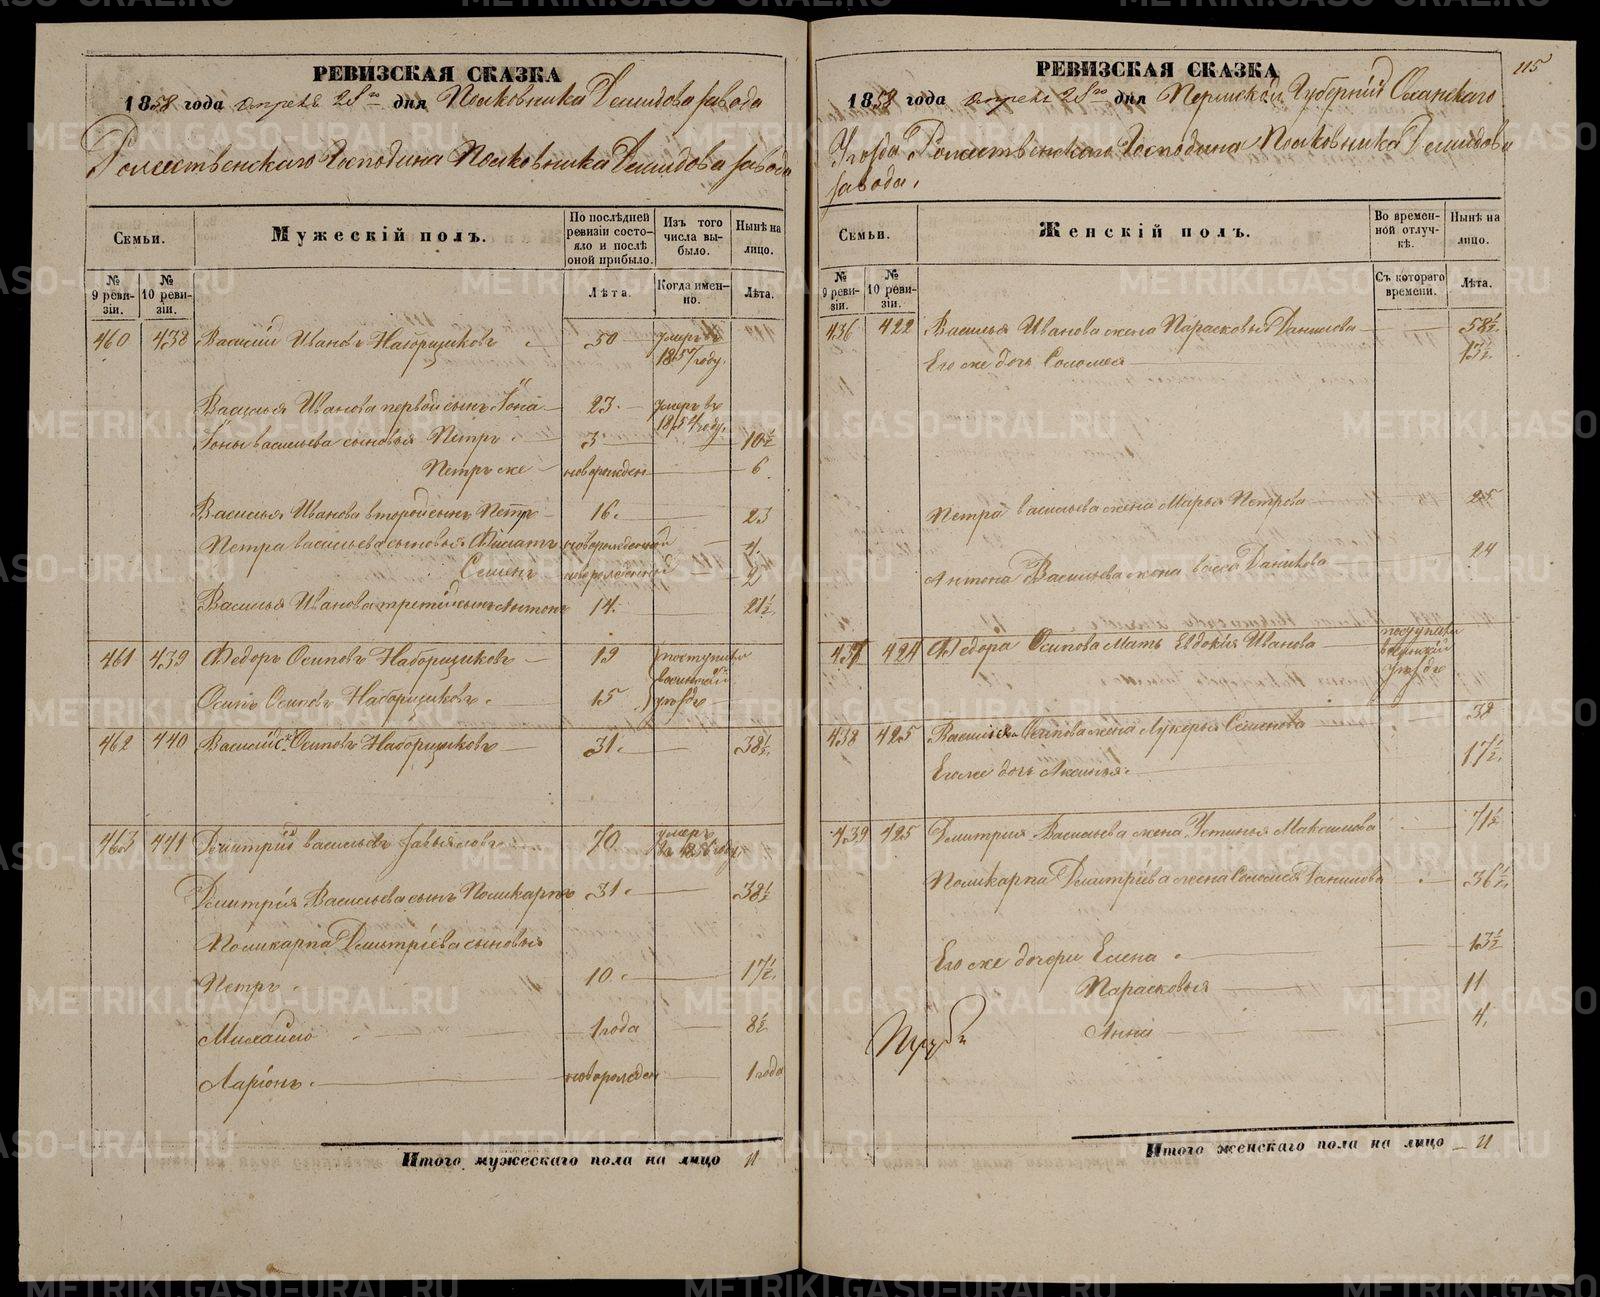 РЕВИЗСКАЯ СКАЗКА
1858 года апреля 28го дня Полковника Демидова завода
Рождественскаго Господина Полковника Демидова завода
Семьи.
Мужескій полъ.
По послѣдней ревизіи состояло и послѣ оной прибыло.
Изъ того числа выбыло.
Нынѣ на лицо.
№ 9 ревизіи.
№ 10 ревизіи.
Лѣта.
Когда именно.
Лѣта.
460 438 Василій Ивановъ Наборщиковъ 50 умеръ въ 1857 году.
Василья Иванова первой сынъ Іона 23. умеръ въ 1854 году.
Іоны Васильева сыновья Петръ 3 10½
Петръ же новорожден 6
Василья Иванова второй сынъ Петръ 16. 23
Петра Васильева сыновья Филатъ новорожденной 4.
Семенъ новорожденный
Василья Иванова третій сынъ Антонъ 14. 21½
461 439 Федоръ Осиповъ Наборщиковъ 19 поступили
Осипъ Осиповъ Наборщиковъ. 15 уездъ
462 440 Василій Осиповъ Наборщиковъ 31. 38½.
463 441 Дмитрій Васильевъ Завьяловъ 70. умеръ въ 1856 году
Дмитрія Васильева сынъ Поликарпъ 31. 38½
Поликарпа Дмитріева сыновья
Петръ. 10. 17½.
Михайло 1 года 8½
Ларіонъ. новорожден 1 года
Итого мужескаго пола на лицо 11
115
РЕВИЗСКАЯ СКАЗКА
1858 года апреля 28го дня Пермской Губерніи Оханскаго
Уезда Рождественскаго Господина Полковника Демидова
завода.
Семьи.
Женскій полъ.
Во временной отлучкѣ.
Нынѣ на лицо.
№ 9 ревизіи.
№ 10 ревизіи.
Съ котораго времени.
Лѣта.
436 422 Василья Иванова жена Парасковья Данилова 58½.
Его же дочь Соломея 13½.
Петра Васильева жена Марья Петрова 25
Антона Васильева жена Васса Данилова 24
437 424 Федора Осипова мать Евдокия Иванова поступила уездъ
438 425 Василья Осипова жена Лукерья Семенова 38
Его же дочь Аксинья. 17½.
439 425 Дмитрия Васильева жена Устинья Максимова 71½
Поликарпа Дмитріева жена Соломея Данилова 36½.
Его же дочери Елена 13½
Парасковья 11
Анна 4.
Итого женскаго пола на лицо 11
METRIKI.GASO-URAL.RU